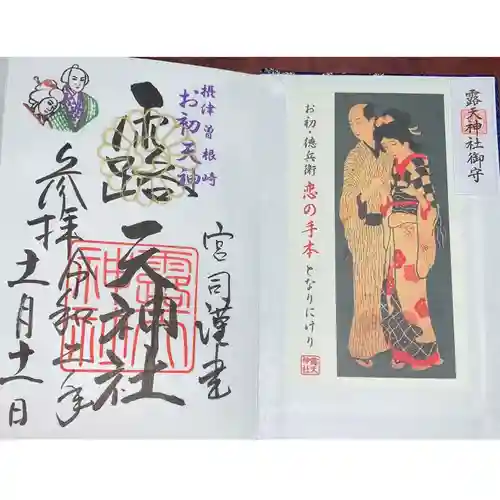 摂津曽根崎
お初天神
露天神社
宮司謹書
参拝令和二年
十一月十一日
露天神社
露天神社御守
お初・徳兵衛 恋の手本 となりにけり
露天神社